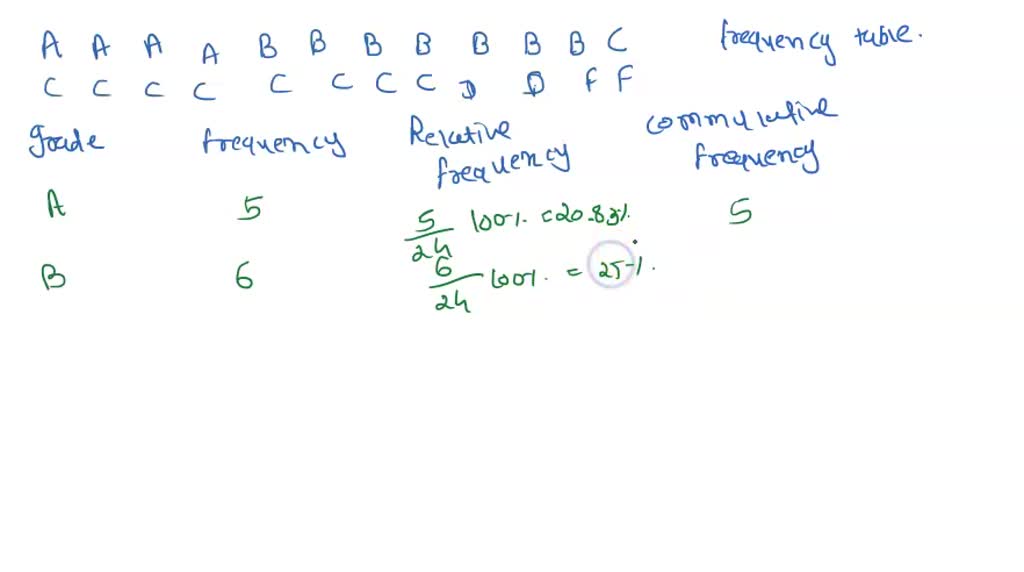 A A A A B B B B B B B C frequency table.
C C C C C C C C D D F F
grade frequency Relative frequency commulative frequency
A 5 5/24 100%. = 20.83%. 5
B 6 6/24 100%. = 25%.